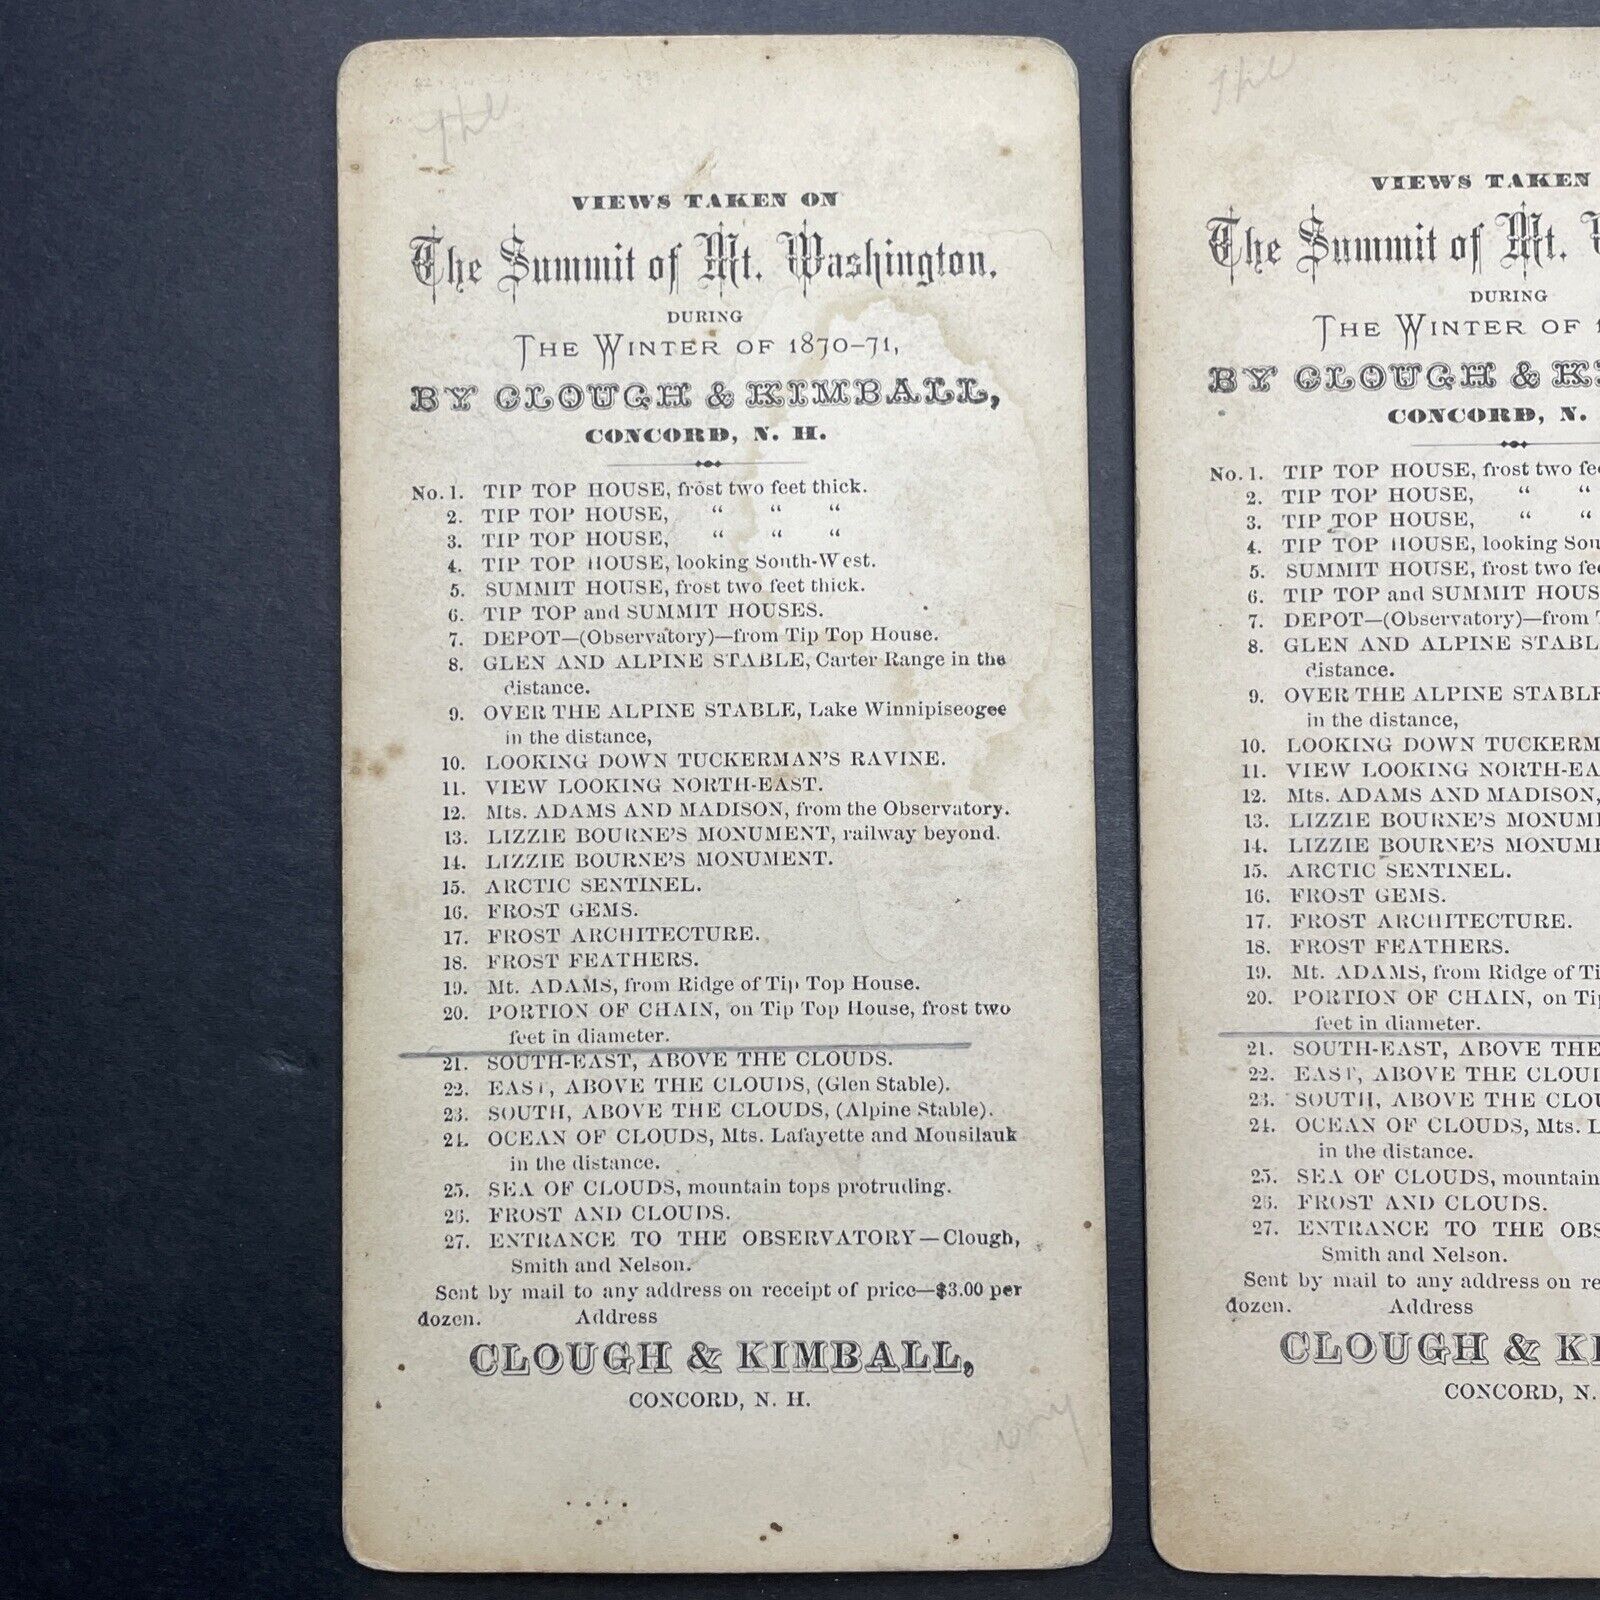 VIEWS TAKEN ON
The Summit of Mt. Washington,
DURING
THE WINTER OF 1870-71,
BY CLOUGH & KIMBALL,
CONCORD, N. H.
No. 1. TIP TOP HOUSE, frost two feet thick.
2. TIP TOP HOUSE, " " "
3. TIP TOP HOUSE, " " "
4. TIP TOP HOUSE, looking South-West.
5. SUMMIT HOUSE, frost two feet thick.
6. TIP TOP and SUMMIT HOUSES.
7. DEPOT—(Observatory)—from Tip Top House.
8. GLEN AND ALPINE STABLE, Carter Range in the
distance.
9. OVER THE ALPINE STABLE, Lake Winnipiseogee
in the distance,
10. LOOKING DOWN TUCKERMAN'S RAVINE.
11. VIEW LOOKING NORTH-EAST.
12. Mts. ADAMS AND MADISON, from the Observatory.
13. LIZZIE BOURNE'S MONUMENT, railway beyond.
14. LIZZIE BOURNE'S MONUMENT.
15. ARCTIC SENTINEL.
16. FROST GEMS.
17. FROST ARCHITECTURE.
18. FROST FEATHERS.
19. Mt. ADAMS, from Ridge of Tip Top House.
20. PORTION OF CHAIN, on Tip Top House, frost two
feet in diameter.
21. SOUTH-EAST, ABOVE THE CLOUDS.
22. EAST, ABOVE THE CLOUDS, (Glen Stable).
23. SOUTH, ABOVE THE CLOUDS, (Alpine Stable).
24. OCEAN OF CLOUDS, Mts. Lafayette and Mousilauk
in the distance.
25. SEA OF CLOUDS, mountain tops protruding.
26. FROST AND CLOUDS.
27. ENTRANCE TO THE OBSERVATORY—Clough,
Smith and Nelson.
Sent by mail to any address on receipt of price—$3.00 per
dozen. Address
CLOUGH & KIMBALL,
CONCORD, N. H.
VIEWS TAKEN
The Summit of Mt.
DURING
THE WINTER OF
BY CLOUGH &
CONCORD, N.
No. 1. TIP TOP HOUSE, frost two
2. TIP TOP HOUSE, " "
3. TIP TOP HOUSE, " "
4. TIP TOP HOUSE, looking
5. SUMMIT HOUSE, frost two
6. TIP TOP and SUMMIT
7. DEPOT—(Observatory)—from
8. GLEN AND ALPINE
distance.
9. OVER THE ALPINE
in the distance,
10. LOOKING DOWN
11. VIEW LOOKING
12. Mts. ADAMS AND MADISON,
13. LIZZIE BOURNE'S
14. LIZZIE BOURNE'S
15. ARCTIC SENTINEL.
16. FROST GEMS.
17. FROST ARCHITECTURE.
18. FROST FEATHERS.
19. Mt. ADAMS, from Ridge of
20. PORTION OF CHAIN, on
feet in diameter.
21. SOUTH-EAST, ABOVE THE
22. EAST, ABOVE THE
23. SOUTH, ABOVE THE
24. OCEAN OF CLOUDS, Mts.
in the distance.
25. SEA OF CLOUDS,
26. FROST AND CLOUDS.
27. ENTRANCE TO THE
Smith and Nelson.
Sent by mail to any address on
dozen. Address
CLOUGH &
CONCORD, N.